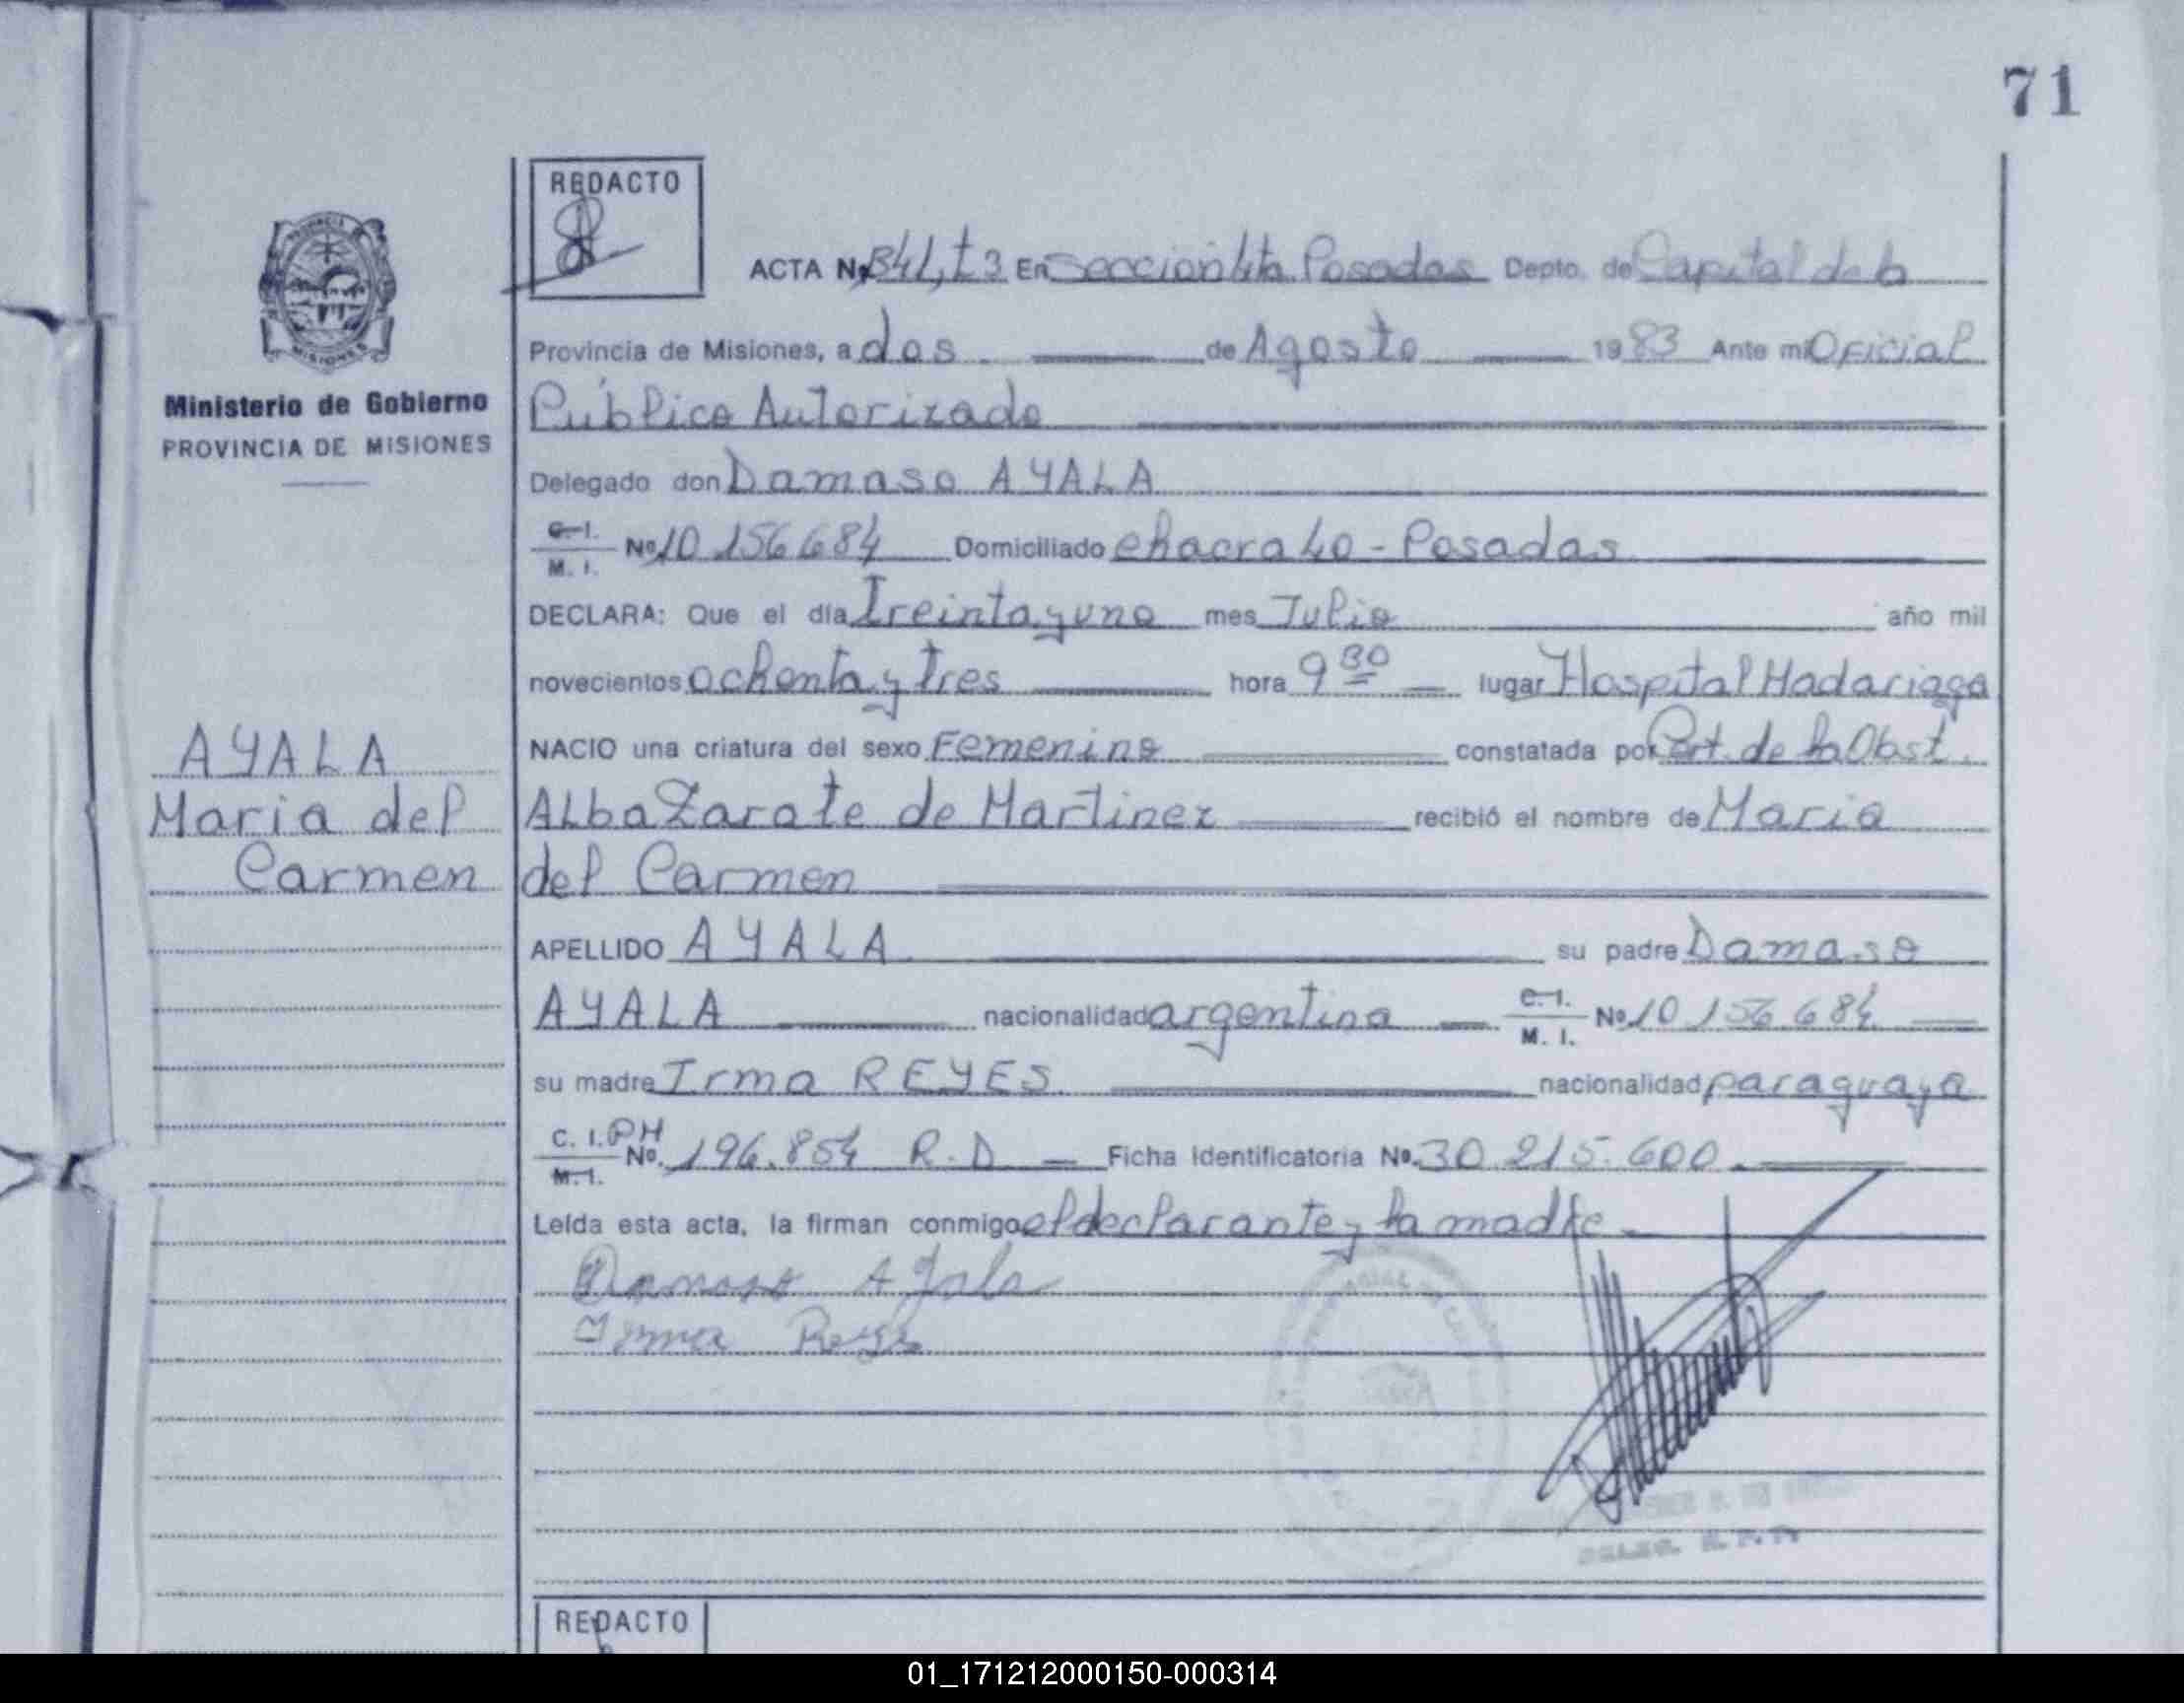 71
REDACTO
ACTA Nº 341, t 3 En Seccion 4ta Posadas Depto. de Capital de la
Provincia de Misiones, a dos de Agosto 1983 Ante mi Oficial
Ministerio de Gobierno
PROVINCIA DE MISIONES
Público Autorizado
Delegado don Damaso AYALA
C. I.
M. I. Nº 10 156 684 Domiciliado chacra 40 - Posadas
DECLARA: Que el día Treinta y uno mes Julio año mil
novecientos ochenta y tres hora 9 30 lugar Hospital Madariaga
NACIO una criatura del sexo Femenino constatada por Cert. de la Obst.
AYALA
Maria del
Carmen
Alba Zarate de Martinez recibió el nombre de Maria
del Carmen
APELLIDO AYALA su padre Damaso
AYALA nacionalidad argentina C. I.
M. I. Nº 10 156 684
su madre Irma REYES nacionalidad paraguaya
C. I. PM
M. I. Nº. 196.854 R.D Ficha Identificatoria Nº. 30.215.600
Leída esta acta, la firman conmigo el declarante y la madre
Damaso Ayala
Irma Reyes
REDACTO
01_171212000150-000314